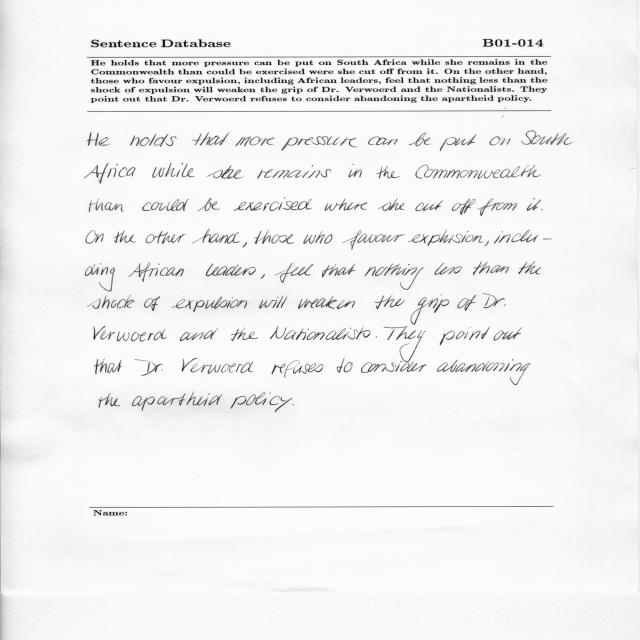 Sentence Database B01-014
He holds that more pressure can be put on South Africa while she remains in the
Commonwealth than could be exercised were she cut off from it. On the other hand,
those who favour expulsion, including African leaders, feel that nothing less than the
shock of expulsion will weaken the grip of Dr. Verwoerd and the Nationalists. They
point out that Dr. Verwoerd refuses to consider abandoning the apartheid policy.
He holds that more pressure can be put on South
Africa while she remains in the Commonwealth
than could be exercised where she cut off from it.
On the other hand, those who favour explusion, inclu-
ding African leaders, feel that nothing less than the
shock of expulsion will weaken the grip of Dr.
Verwoerd and the Nationalists. They point out
that Dr. Verwoerd refuses to consider abandoning
the apartheid policy.
Name: